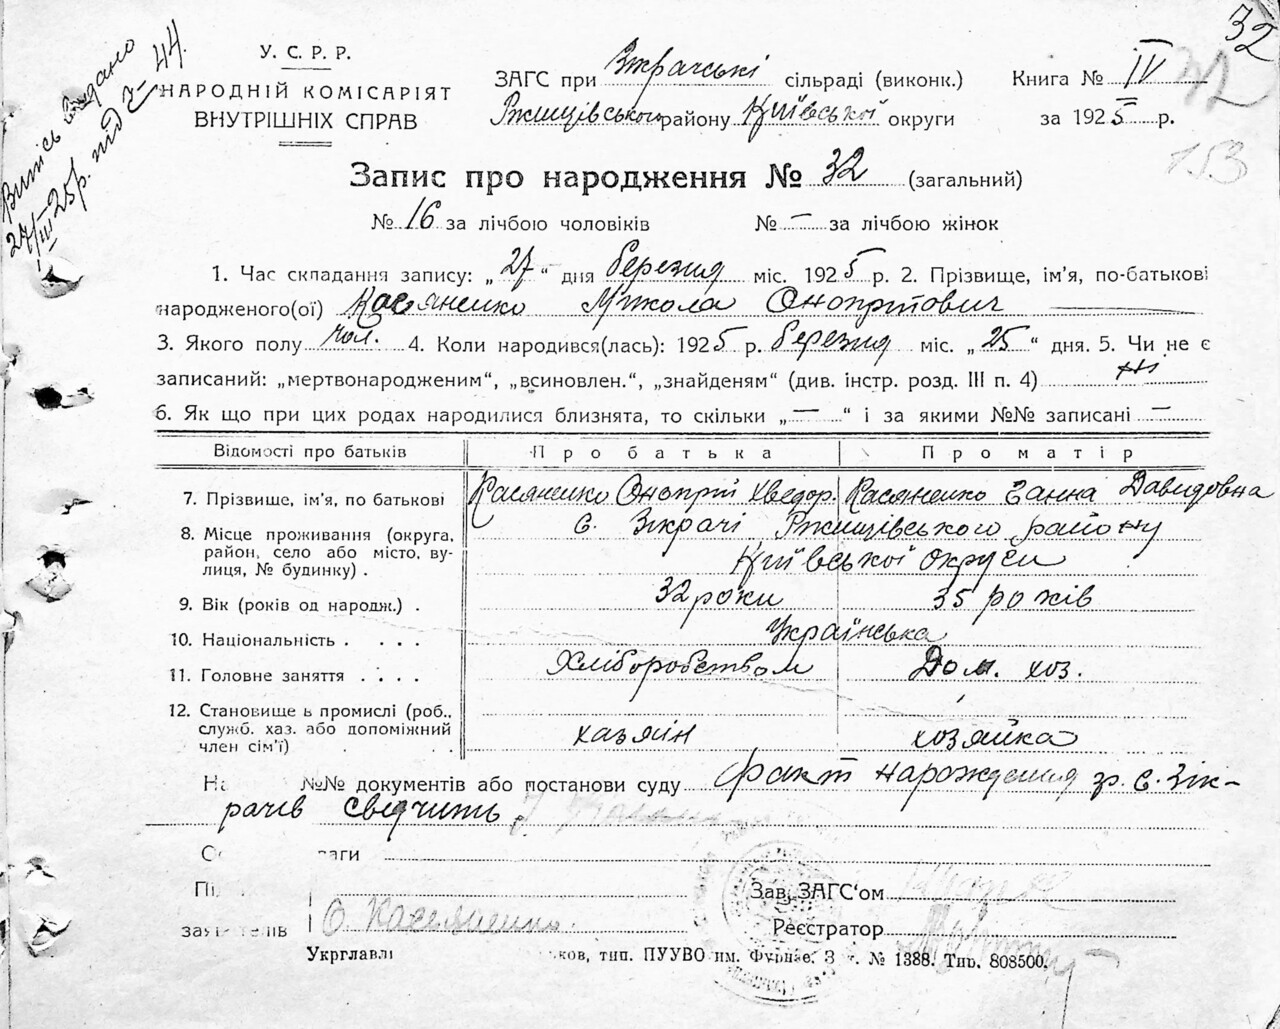 32
Витись видано
27/III 25 р. під № 44.
У. С. Р. Р.
НАРОДНІЙ КОМІСАРІЯТ
ВНУТРІШНІХ СПРАВ
ЗАГС при сільраді (виконк.)
Ржищівського району Київської округи
Книга № IV
за 1925 р.
32
153
Запис про народження № 32 (загальний)
№ 16 за лічбою чоловіків № — за лічбою жінок
1. Час складання запису: „27“ дня березня міс. 1925 р. 2. Прізвище, ім’я, по-батькові
народженого(ої) Касяненко Микола Онопрійович
3. Якого полу чол. 4. Коли народився(лась): 1925 р. березня міс. „25“ дня. 5. Чи не є
записаний: „мертвонародженим“, „всиновлен.“, „знайденям“ (див. інстр. розд. III п. 4) ні
6. Як що при цих родах народилися близнята, то скільки „—“ і за якими №№ записані —
Відомості про батьків Про батька Про матір
7. Прізвище, ім’я, по батькові Касяненко Онопрій Хведор. Касяненко Ганна Давидовна
8. Місце проживання (округа, район, село або місто, вулиця, № будинку) . с. Зікрачі Ржищівського району
Київської округи
9. Вік (років од народж.) . 32 роки 35 років
10. Національність . . . . Українська
11. Головне заняття . . . . Хліборобством Дом. хоз.
12. Становище в промислі (роб., служб. хаз. або допоміжний член сім’ї) хазяїн хозяйка
№№ документів або постанови суду факт нарождения гр. с. Зік-
рачів свідчить
Зав. ЗАГС’ом
О. Касяненко
Реєстратор
Укрглавлі
тип. ПУУВО им. Фрунзе. З № 1388. Тир. 808500.